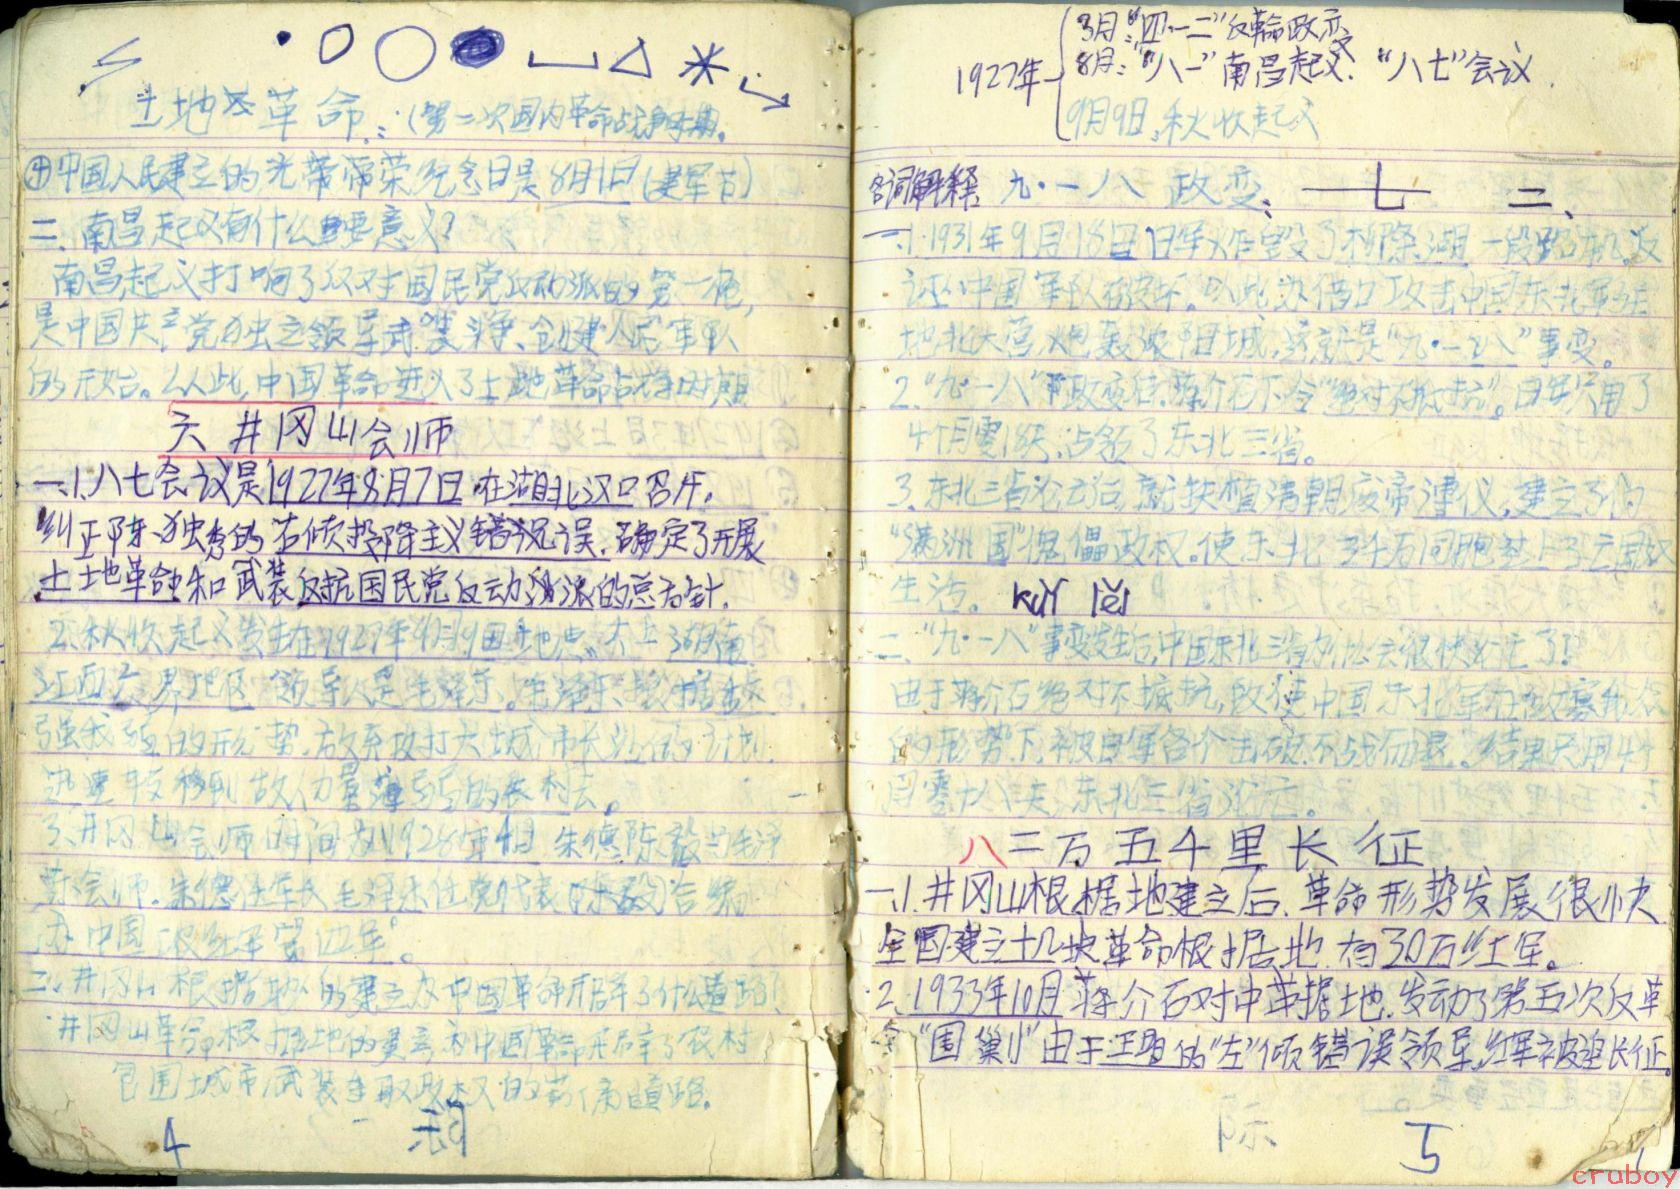 土地革命：（第二次国内革命战争时期。
④中国人民建立的光荣纪念日是8月1日（建军节）
二、南昌起义有什么重要意义？
南昌起义打响了反对国民党反动派的第一枪，
是中国共产党独立领导武装斗争、创建人民军队
的开始。从此，中国革命进入了土地革命战争时期
六 井冈山会师
一、1.八七会议是1927年8月7日在湖北汉口召开。
纠正陈独秀的右倾投降主义错误。确定了开展
土地革命和武装反抗国民党反动派的总方针.
2.秋收起义发生在1927年9月9日地点
江西 界地区 领导人是毛泽东。毛泽东
强我弱的形势.放弃攻打大城市长沙的计划.
迅速转移到敌人力量薄弱的农村去。
3.井冈山会师时间为1928年4月 朱德陈毅与毛泽
东会师.朱德任军长 毛泽东任党代表 合编
为中国 红军第四军。
二、井冈山根据地的建立为中国革命开辟了什么道路？
井冈山革命根据地的建立为中国革命开辟了农村
包围城市，武装夺取政权的 道路.
4
1927年
3月：“四·一二”反革命政变
8月：“八一”南昌起义. “八七”会议.
9月9日，秋收起义
名词解释 九·一八 政变、 七 二、
一、1.1931年9月18日日军炸毁了柳条湖一段路轨，反
诬中国军队破坏。以此为借口攻击中国东北军驻
地北大营，炮轰沈阳城，这就是“九·一八”事变。
2.“九·一八”政变后，蒋介石下令“绝对不抵抗”。日军只用了
4个月零18天，占领了东北三省。
3.东北三省沦亡后，就扶植清朝废帝溥仪，建立了伪
“满洲国”傀儡政权。使东北三千万同胞过上了亡国奴
生活。 kuǐ lěi
二、“九·一八”事变发生后，中国东北三省为什么会很快沦亡了？
由于蒋介石绝对不抵抗，致使中国东北军在敌寡我众
的形势下，被日军各个击破，不战而退。结果只用4个
月零十八天，东北三省沦亡。
八 二万五千里长征
一、1.井冈山根据地建立后.革命形势发展很快
全国建立十几块革命根据地 有30万红军。
2.1933年10月蒋介石对中革据地.发动了第五次反革
命“围剿”由于王明的“左”倾错误领导，红军被迫长征。
际
5
cruboy